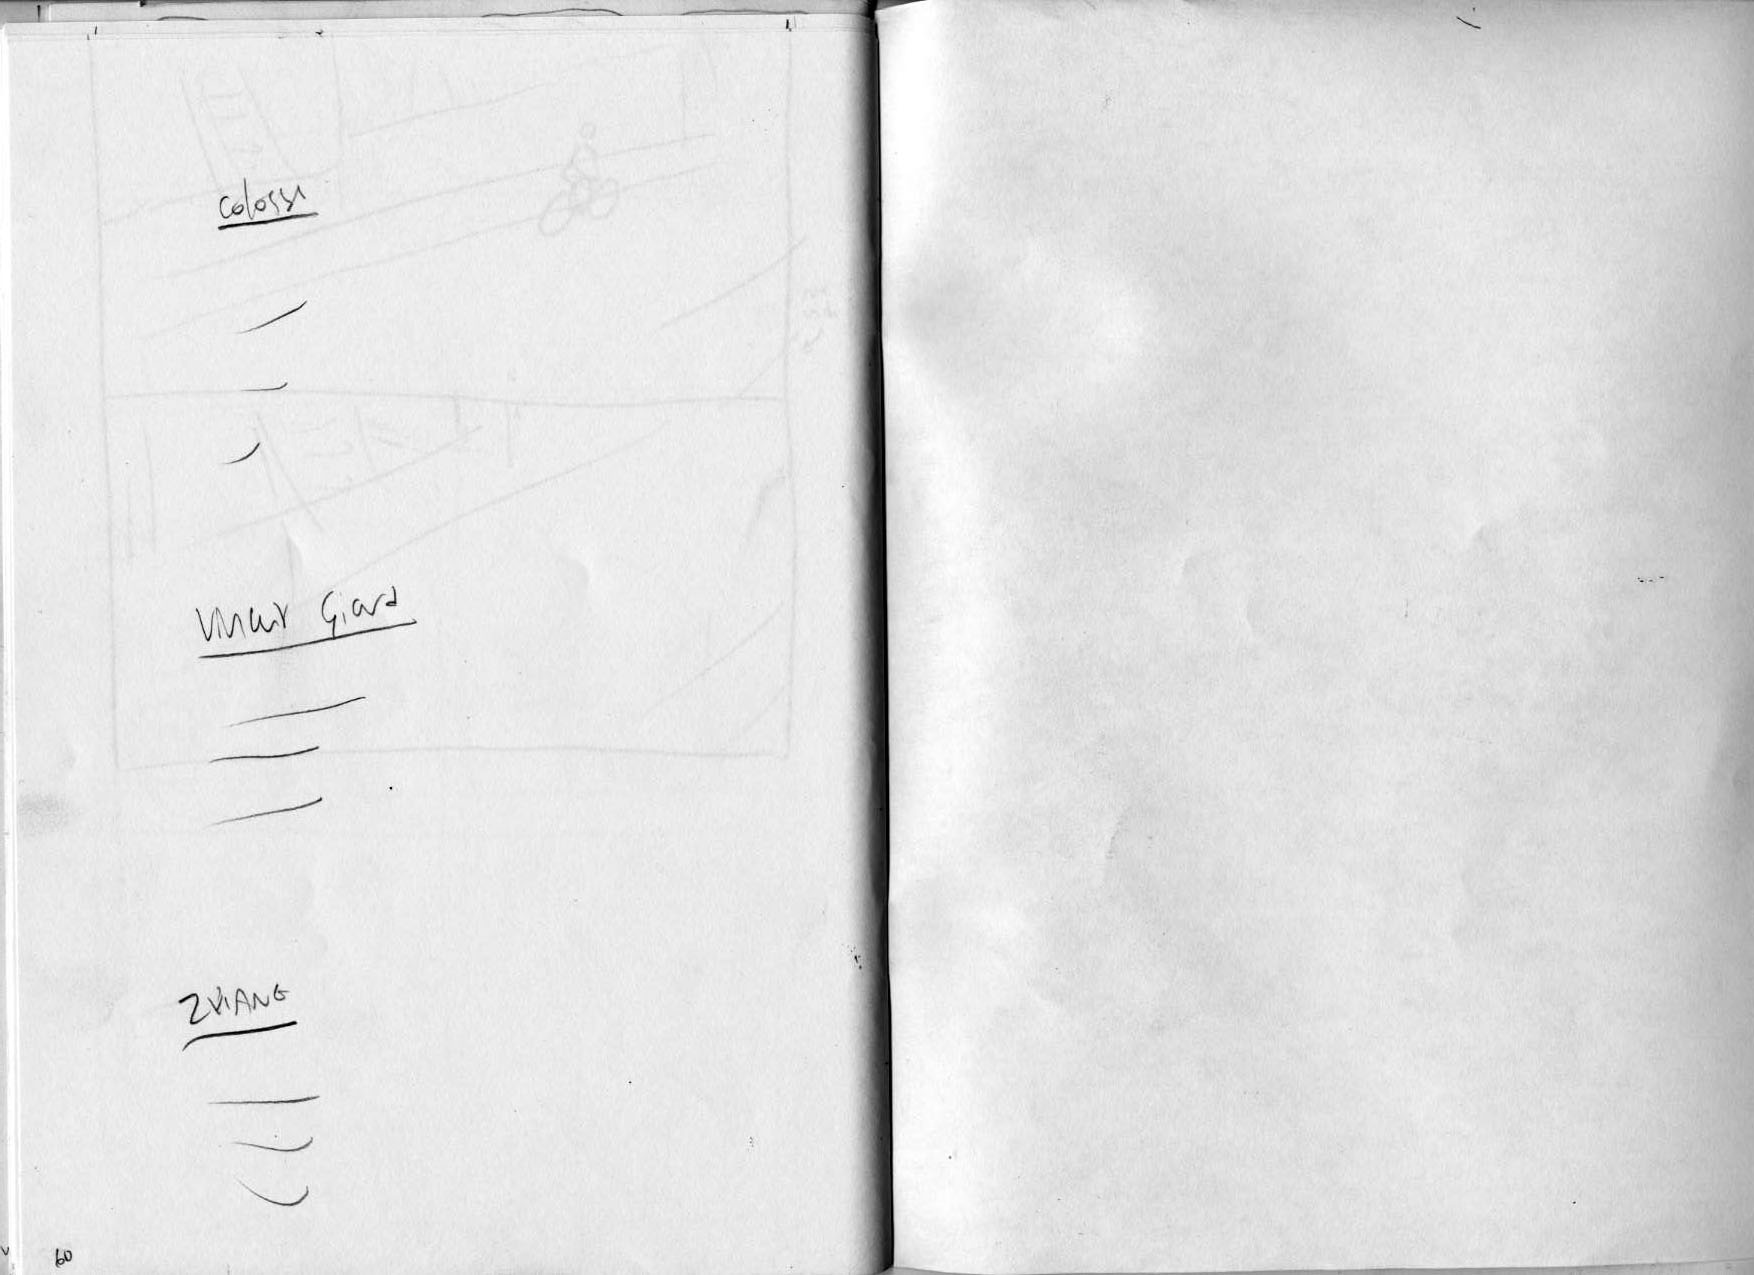 Colossi
Vincent Giard
ZVIANE
60